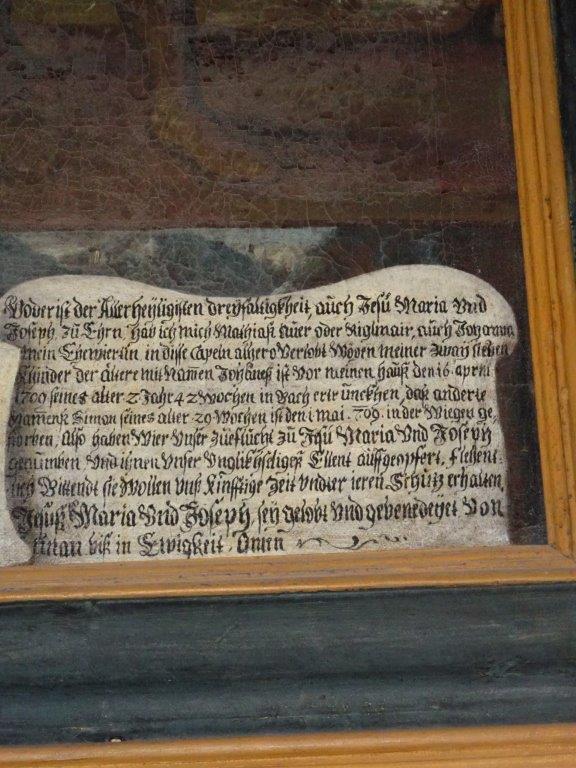 Vover ist der Allerheyligisten dreyfaltigkheit, auch Jesu Maria Vnd
Joseph, zu Ehrn, hab ich mich Mathiaß Auer oder Aiglmair, auch Johanna
mein Ehewiertin in dise Capeln alhero Verlobt Wögen meiner zway
Künder der Ältere mit Namen Johaneß ist Vor meinen hauß den 16 april
1700 seines alter 2 Jahr 42 Wochen in Bach ertruncckhen, daß anderte
Namenß Simon seines alter 29 Wochen ist den 1 mai 709. in der Wiegen ge,
storben, Also haben Wier Vnser Zueflucht zu Jesu Maria Vnd Joseph
genumben Vnd ihnen Vnser Vnglikhseligeß Ellent auffgeopfert, Flehent,
lich Bittendt sie Wollen Vnß Kinfftige Zeit Vndter ieren Schutz erhalten,
Jesuß Maria Vnd Joseph, sey gelobt Vnd gebenedeyet Von
nun an biß in Ewigkeit, Amen